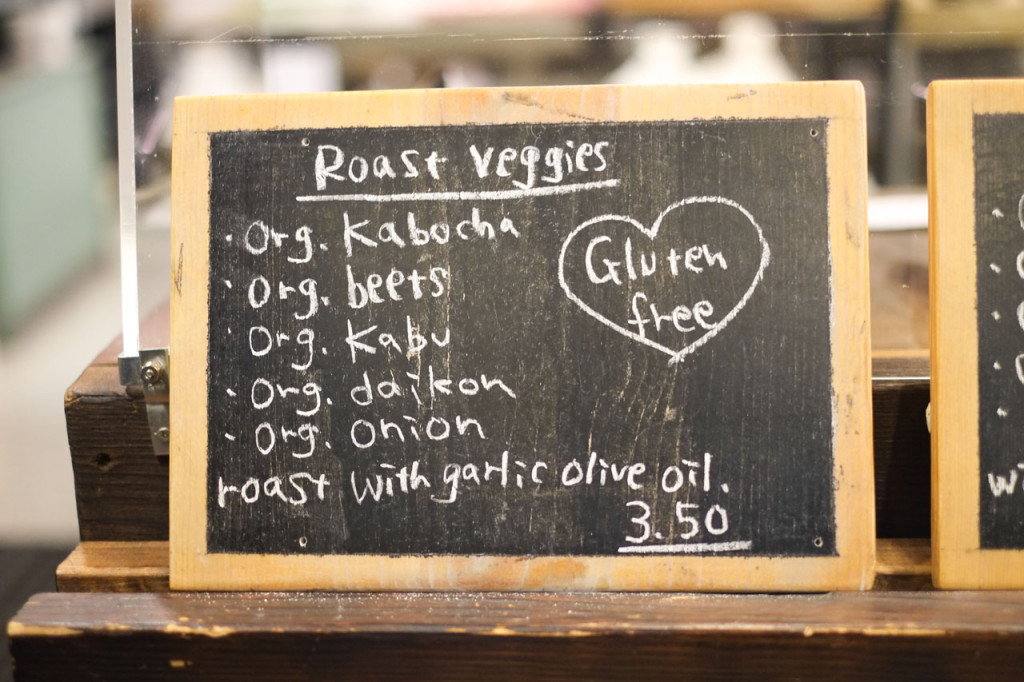 Roast Veggies
· Org. Kabocha
· Org. beets
· Org. Kabu
· Org. daikon
· Org. onion
roast with garlic olive oil.
3.50
Gluten
free